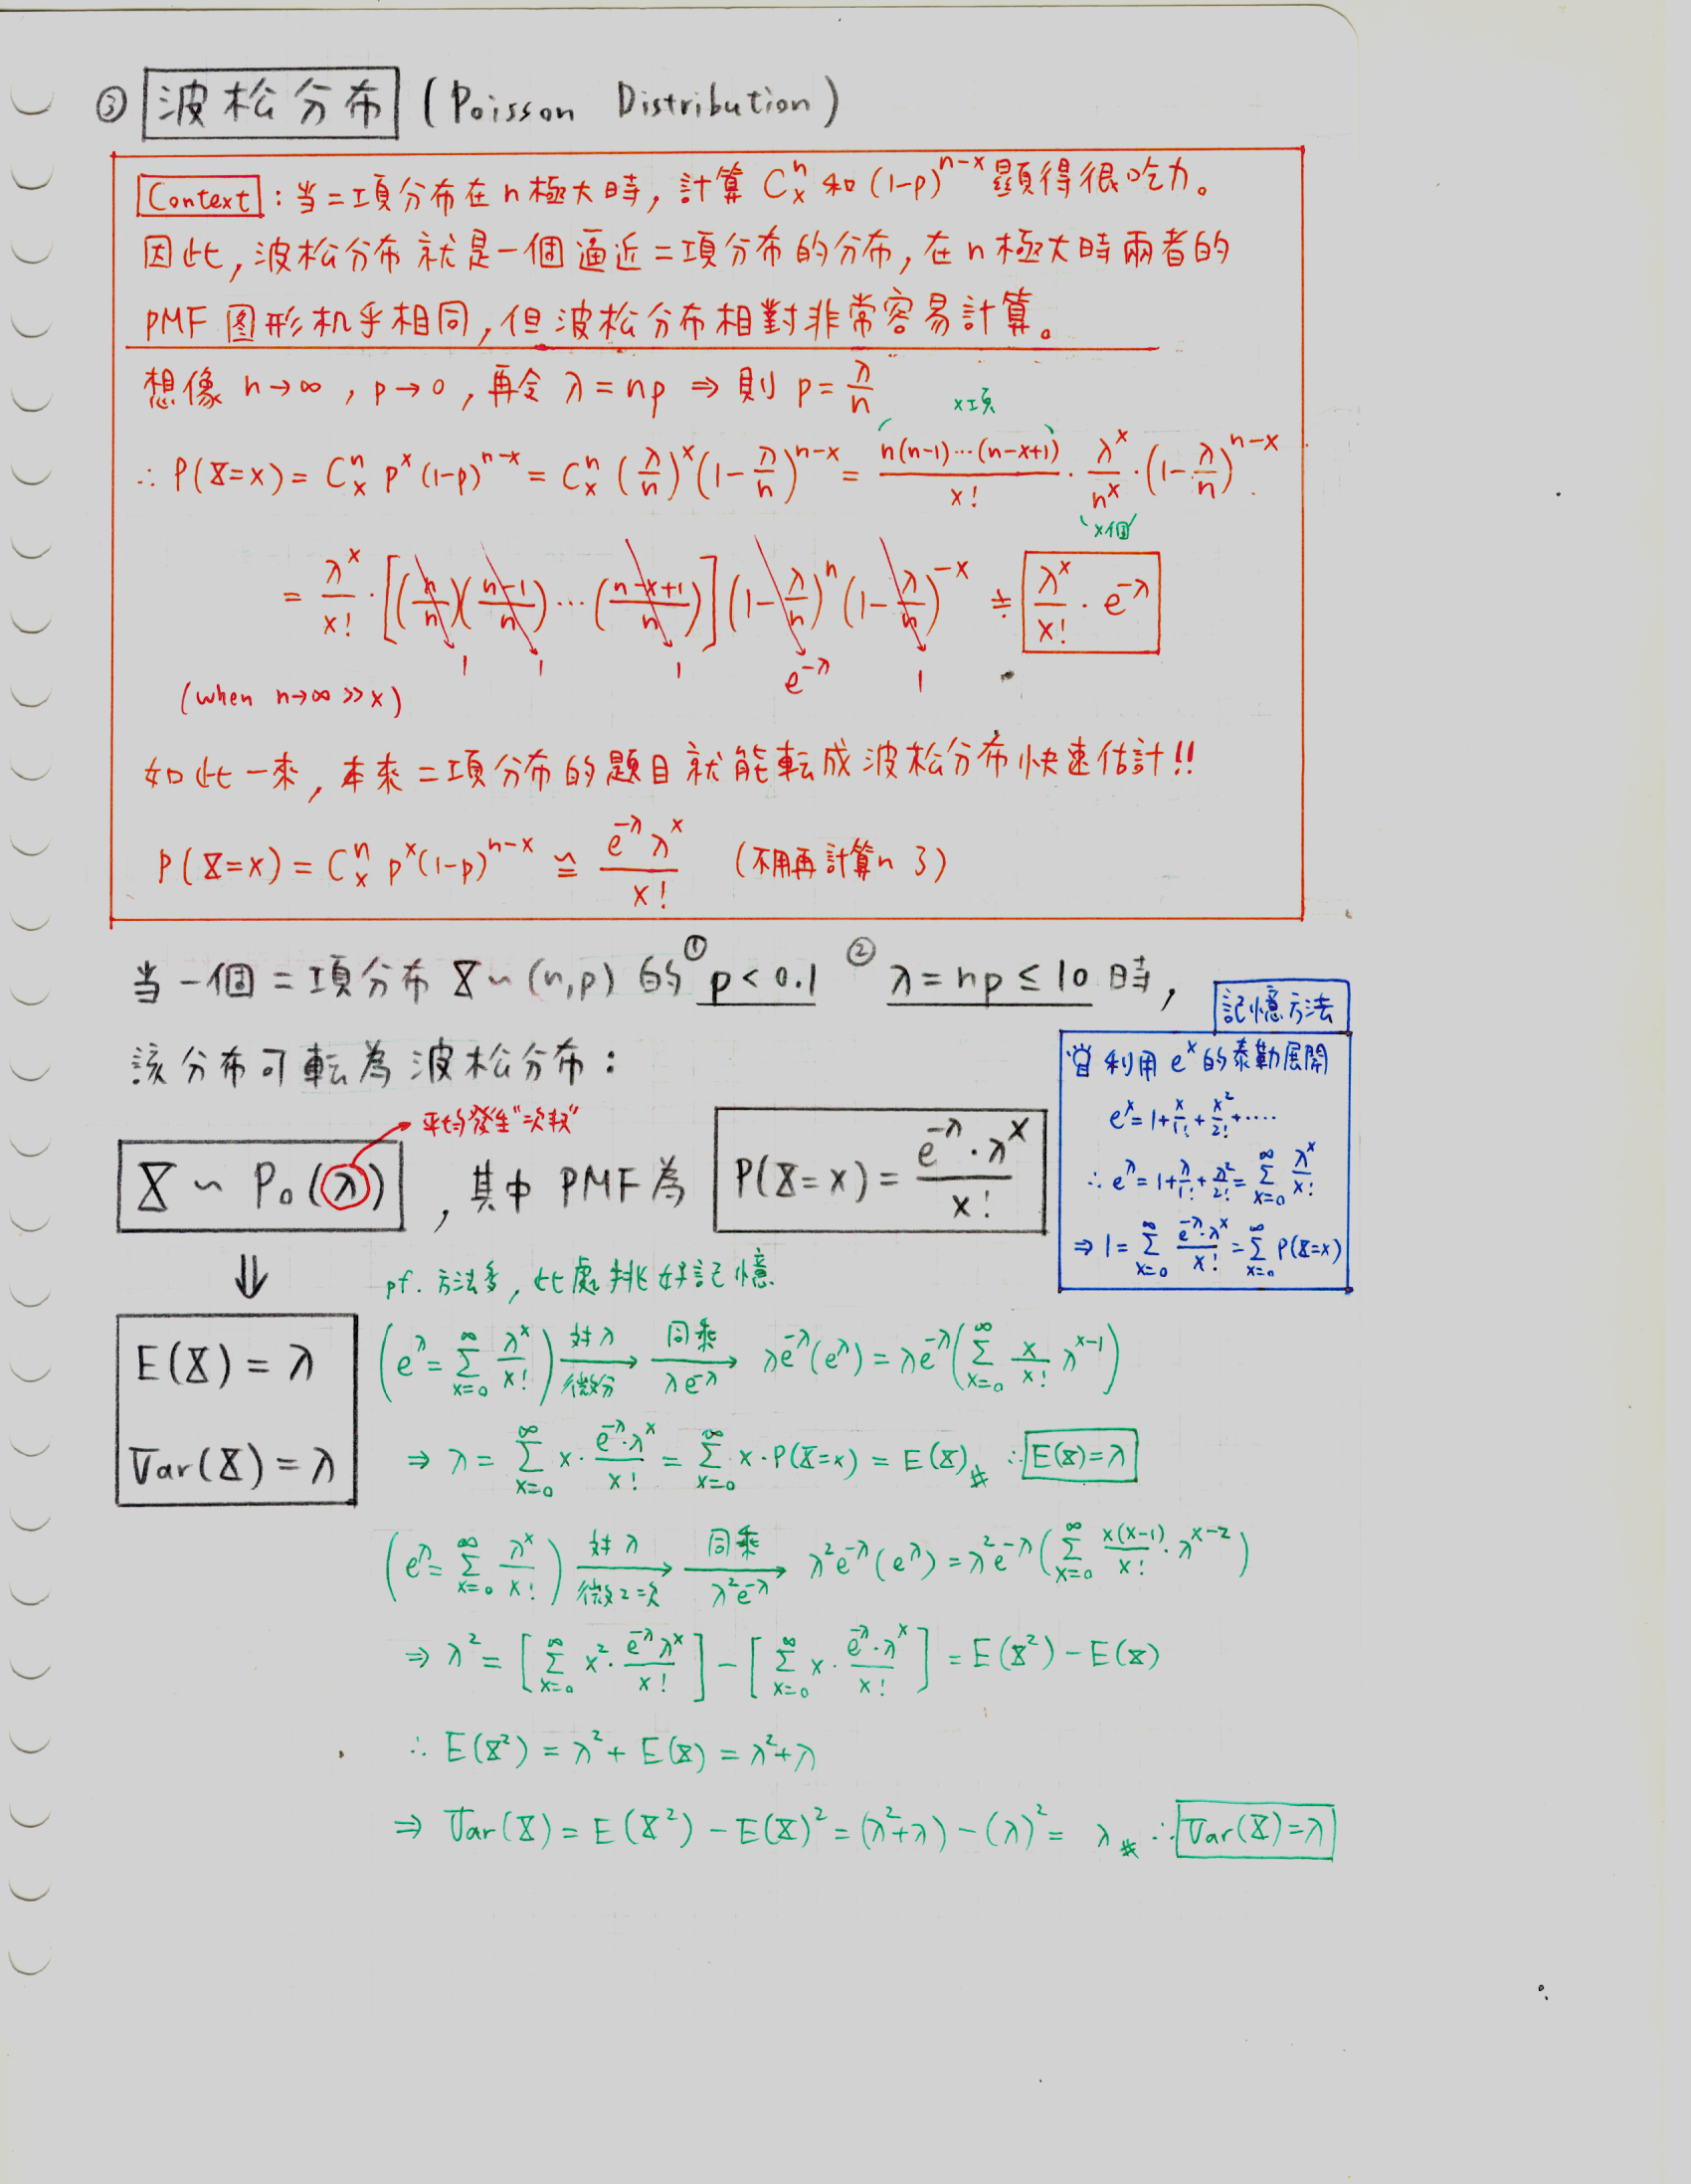 ③ 波松分布 (Poisson Distribution)
Context : 当二項分布在 n 極大時, 計算 C^n_x 和 (1-p)^{n-x} 顯得很吃力。
因此, 波松分布就是一個逼近二項分布的分布, 在 n 極大時兩者的
PMF 图形机乎相同, 但波松分布相對非常容易計算。
想像 n→∞ , p→0 , 再令 λ = np ⇒ 則 p = λ/n
x項
∴ P(X=x) = C^n_x p^x (1-p)^{n-x} = C^n_x (λ/n)^x (1-λ/n)^{n-x} = n(n-1)⋯(n-x+1)/x! · λ^x/n^x · (1-λ/n)^{n-x}
x個
= λ^x/x! · [(n/n)(n-1/n)⋯(n-x+1/n)] (1-λ/n)^n (1-λ/n)^{-x} ≑ λ^x/x! · e^{-λ}
1 1 1 e^{-λ} 1
(when n→∞ >> x)
如此一來, 本來二項分布的題目就能転成波松分布快速估計!!
P(X=x) = C^n_x p^x (1-p)^{n-x} ≌ e^{-λ} λ^x / x! (不用再計算n了)
当一個二項分布 X~(n,p) 的 ① p < 0.1 ② λ = np ≤ 10 時,
該分布可転為波松分布:
記憶方法
利用 e^x 的泰勒展開
e^x = 1 + x/1! + x^2/2! + ⋯⋅
∴ e^λ = 1 + λ/1! + λ^2/2! = ∑_{x=0}^∞ λ^x/x!
⇒ 1 = ∑_{x=0}^∞ e^{-λ}·λ^x/x! = ∑_{x=0}^∞ P(X=x)
平均發生"次数"
X ~ Po(λ) , 其中 PMF 為 P(X=x) = e^{-λ}·λ^x / x!
⇓
pf. 方法多, 此處挑好記憶
E(X) = λ
Var(X) = λ
(e^λ = ∑_{x=0}^∞ λ^x/x!) 対λ 微分 → 同乗 λe^{-λ} → λe^{-λ}(e^λ) = λe^{-λ}(∑_{x=0}^∞ x/x! λ^{x-1})
⇒ λ = ∑_{x=0}^∞ x · e^{-λ}·λ^x/x! = ∑_{x=0}^∞ x·P(X=x) = E(X)_# ∴ E(X)=λ
(e^λ = ∑_{x=0}^∞ λ^x/x!) 対λ 微2次 → 同乗 λ^2e^{-λ} → λ^2e^{-λ}(e^λ) = λ^2e^{-λ}(∑_{x=0}^∞ x(x-1)/x! · λ^{x-2})
⇒ λ^2 = [∑_{x=0}^∞ x^2 · e^{-λ}λ^x/x!] - [∑_{x=0}^∞ x · e^{-λ}·λ^x/x!] = E(X^2) - E(X)
∴ E(X^2) = λ^2 + E(X) = λ^2+λ
⇒ Var(X) = E(X^2) - E(X)^2 = (λ^2+λ) - (λ)^2 = λ_# ∴ Var(X)=λ